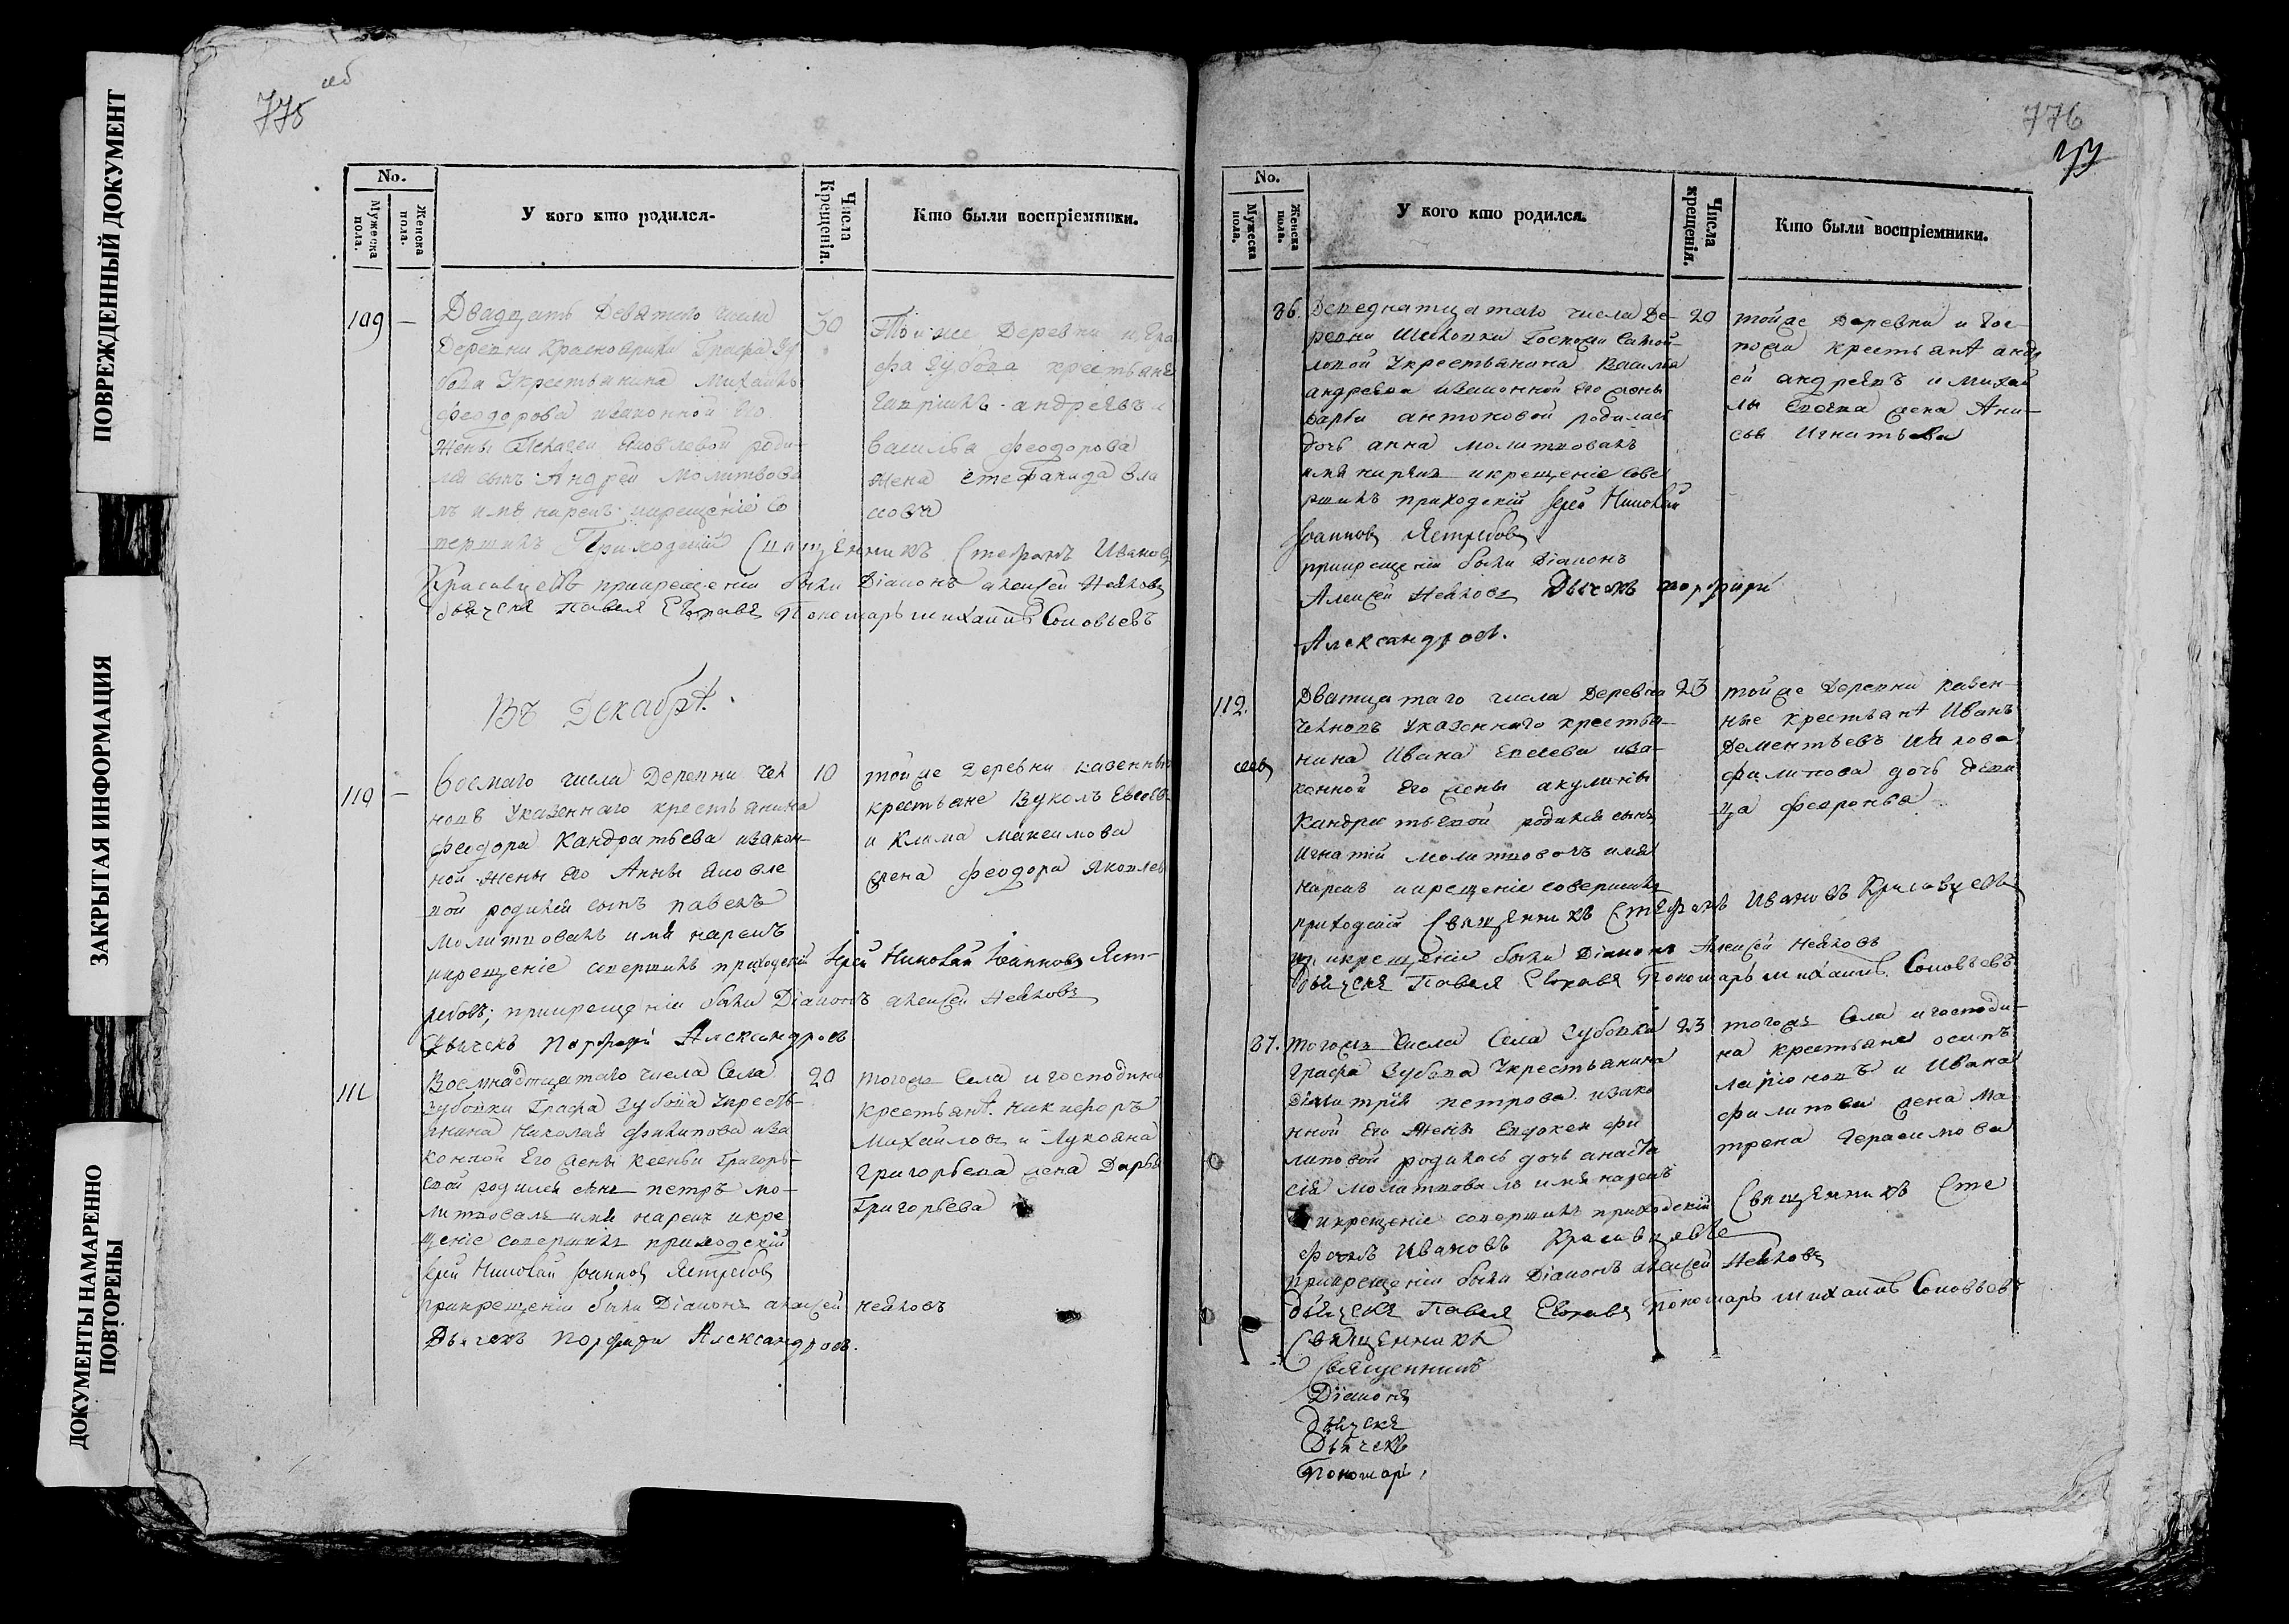 ПОВРЕЖДЕННЫЙ ДОКУМЕНТ
ЗАКРЫТАЯ ИНФОРМАЦИЯ
ДОКУМЕНТЫ НАМАРЕННО
ПОВТОРЕНЫ
775 об
No.
Мужеска пола.
Женска пола.
У кого кто родился.
Числа Крещенія.
Кто были воспріемники.
109 —
Двадцать Девятаго числа
Деревни Красноярихи Графа Зу
бова Укрестьянина Михаила
Феодорова изаконной Его
Жены Пелагеи Яковлевой роди
лся сынъ Андрей молитвова
лъ имя нарекъ икрещеніе со
вершилъ Приходскій Священникъ Стефанъ Ивановъ
Красавцевъ прикрещеніи были Діаконъ алексей Нейковъ
дьяческя Павелъ Пономарь михаилъ Соловьевъ
30
Той же Деревни и Гра
фа Зубова крестьяне
Гаврилъ андреевъ и
васильа феодорова
жена Стефанида Вла
сова
Въ Декабрѣ.
110 —
Восмаго числа Деревни Чел
новъ Указеннаго крестьянина
феодора Кандратьева изакон-
ной жены Его Анны яковле
вой родился сынъ павелъ
молитвовалъ имя нарекъ
икрещеніе совершилъ приходскій Іерей Николай Іоанновъ Яст-
ребовъ; прикрещеніи были Діаконъ алексей Нейковъ
Дьячекъ Порфирій Александровъ
10
тойже деревни казенныя
крестьяне Вуколъ Евсеевъ
и Клима максимова
жена феодора яковлев
111
Восмнадцатаго числа Села
Зубовки Графа Зубова Укресть-
янина Николая филипова иза
конной Его жены Ксеньи Григорь-
евой родился сынъ петръ мо-
литвовалъ имя нарекъ икре
щеніе совершилъ приходскій
Іерей Николай Іоанновъ Ястребовъ
прикрещеніи были Діаконъ алексей Нейковъ
Дьячекъ Порфирій Александровъ.
20
тогоже Села и господина
крестьянѣ Никифоръ
Михайловъ и Лукояна
Григорьева жена Дарья
Григорьева
776
No.
Мужеска пола.
Женска пола.
У кого кто родился.
Числа крещенія.
Кто были воспріемники.
86.
числа Де-
ревни Госпожи Самой-
ловой Укрестьянина Василья
андреева изаконной его жены
Дарьи антоновой родилась
дочь анна молитвовалъ
имя нарекъ икрещеніе сове
ршилъ приходскій Іерей Николай
Іоанновъ Ястребовъ
прикрещеніи были Діаконъ
Алексей Нейковъ Дьячекъ порфирій
Александровъ.
20
тойже Деревни и гос-
пожи крестьянѣ андр
ей андреевъ и михай
лы жена Ани-
сья Игнатьева
112.
Дватцатаго числа Деревни
Челновъ Указеннаго крестья-
нина Ивана Евсеева иза-
конной Его жены акулины
Кандратьевой родился сынъ
Игнатій молитвовалъ имя
нарекъ икрещеніе совершилъ
приходскій Священникъ Стефанъ Ивановъ Красавцевъ
при крещеніи были Діаконъ Алексей Нейковъ
Павелъ Пономарь михаилъ Соловьевъ
23
тойже Деревни казен-
ные крестьянѣ Иванъ
Дементьевъ
филипова дочь деви
ца февронья
87.
тогоже числа Села Зубовки
Графа Зубова Укрестьянина
Димитрія петрова изако
нной Его жены Евдокеи фи
липовой родилась дочь анаста
сія молитвовалъ имя нарекъ
икрещеніе совершилъ приходскій Священникъ Сте
фанъ Ивановъ Красавцевъ
прикрещеніи были Діаконъ алексей Нейковъ
Павелъ Пономарь михаилъ Соловьевъ
23
тогоже Села и господи-
на крестьяне осипъ
ларіоновъ и Ивана
филипова жена Ма
трена Герасимова
Священникъ
Священникъ
Діаконъ
Дьячекъ
Пономарь